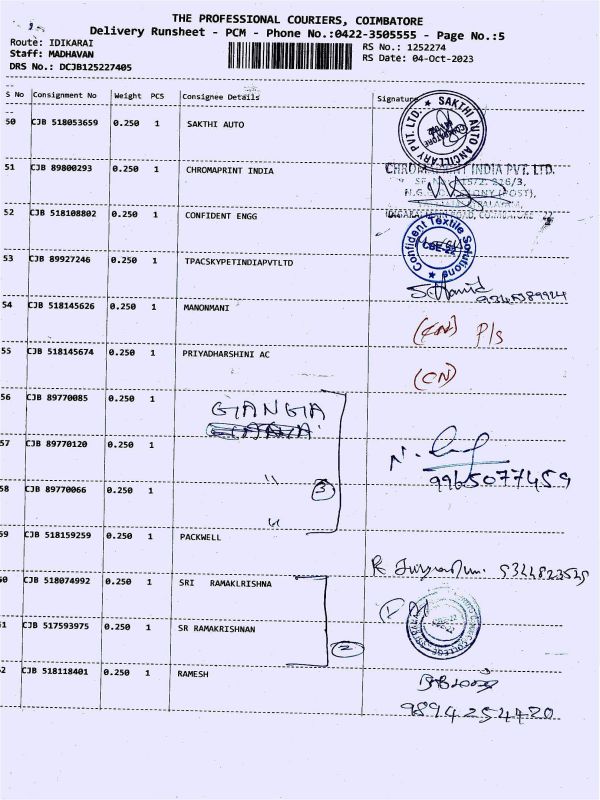 THE PROFESSIONAL COURIERS, COIMBATORE
Delivery Runsheet - PCM - Phone No.:0422-3505555 - Page No.:5
Route: IDIKARAI
RS No.: 1252274
Staff: MADHAVAN
RS Date: 04-Oct-2023
DRS No.: DCJB125227405
S No Consignment No Weight PCS Consignee Details Signature
50 CJB 518053659 0.250 1 SAKTHI AUTO
SAKTHI AUTO ANCILLARY PVT. LTD.
51 CJB 89800293 0.250 1 CHROMAPRINT INDIA
CHROMAPRINT INDIA PVT. LTD.
52 CJB 518108802 0.250 1 CONFIDENT ENGG
Confident Textile Solutions
53 CJB 89927246 0.250 1 TPACSKYPETINDIAPVTLTD
54 CJB 518145626 0.250 1 MANONMANI
(CN) P/s
55 CJB 518145674 0.250 1 PRIYADHARSHINI AC
(CN)
56 CJB 89770085 0.250 1 GANGA
57 CJB 89770120 0.250 1
9965077459
58 CJB 89770066 0.250 1 " 3
"
59 CJB 518159259 0.250 1 PACKWELL
60 CJB 518074992 0.250 1 SRI RAMAKLRISHNA
61 CJB 517593975 0.250 1 SR RAMAKRISHNAN
2
62 CJB 518118401 0.250 1 RAMESH
9894254420